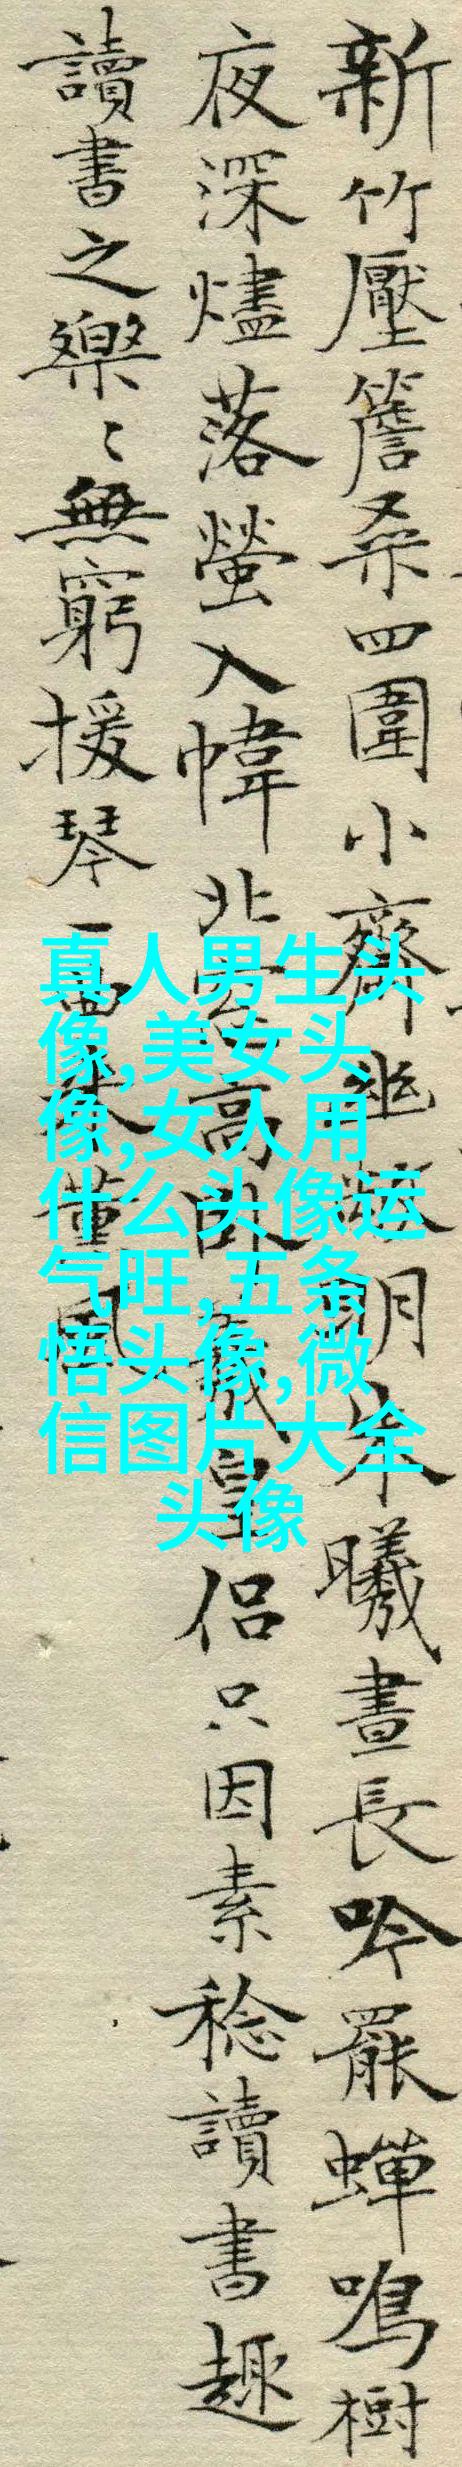 新竹壓簷桑四圍小齋幽敞明朱曦晝長吟罷蟬鳴樹
夜深燼落螢入幃北窓高卧羲皇侶只因素稔讀書趣
讀書之樂〻無窮援琴一曲來薰風
真人男生头
像,美女头
像,女人用
什么头像运
气旺,五条
悟头像,微
信图片大全
头像